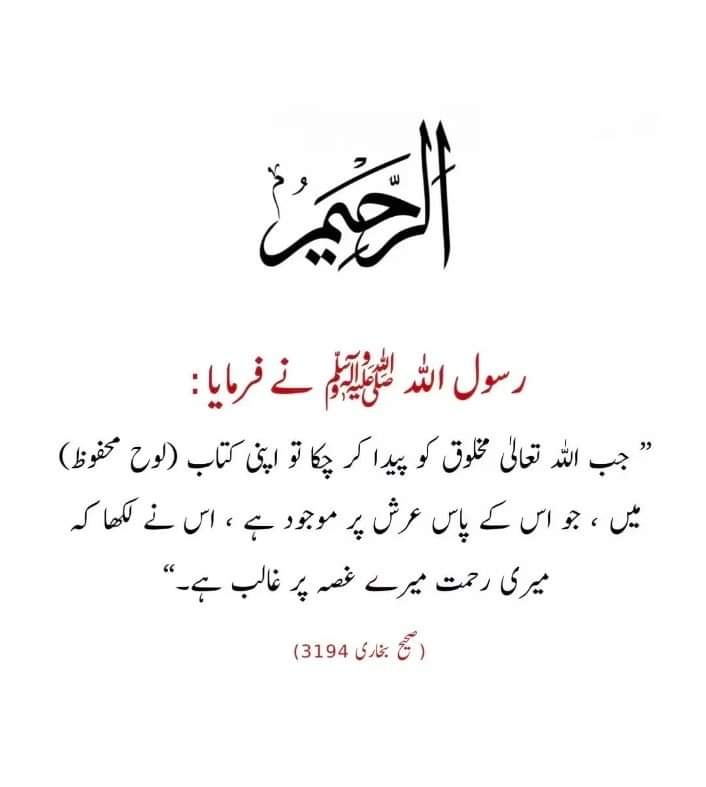 الرَّحِيمُ
رسول اللہ ﷺ نے فرمایا :
” جب اللہ تعالیٰ مخلوق کو پیدا کر چکا تو اپنی کتاب (لوح محفوظ)
میں ، جو اس کے پاس عرش پر موجود ہے ، اس نے لکھا کہ
میری رحمت میرے غصہ پر غالب ہے۔“
(صحیح بخاری 3194)